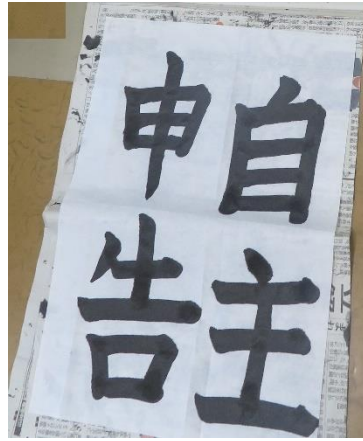 自主
申告